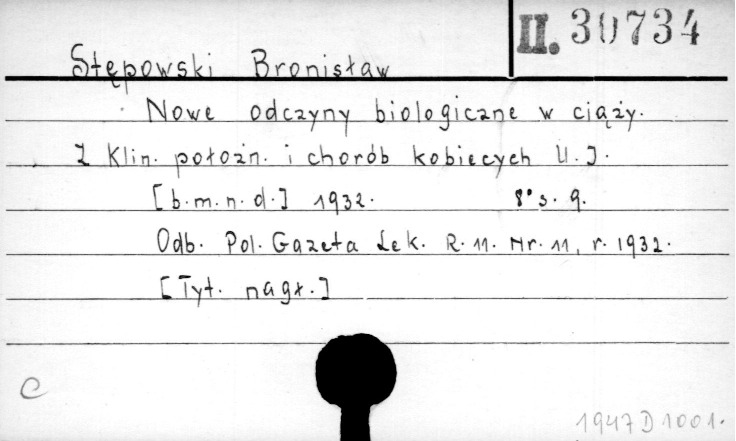 II. 30734
Stępowski Bronisław
Nowe odczyny biologiczne w ciąży.
Z Klin. położn. i chorób kobiecych U. J.
[b. m. n. d.] 1932. 8° s. 9.
Odb. Pol. Gazeta Lek. R. 11. Nr. 11, r. 1932.
[Tyt. nagł.]
C
1947 D 1001.